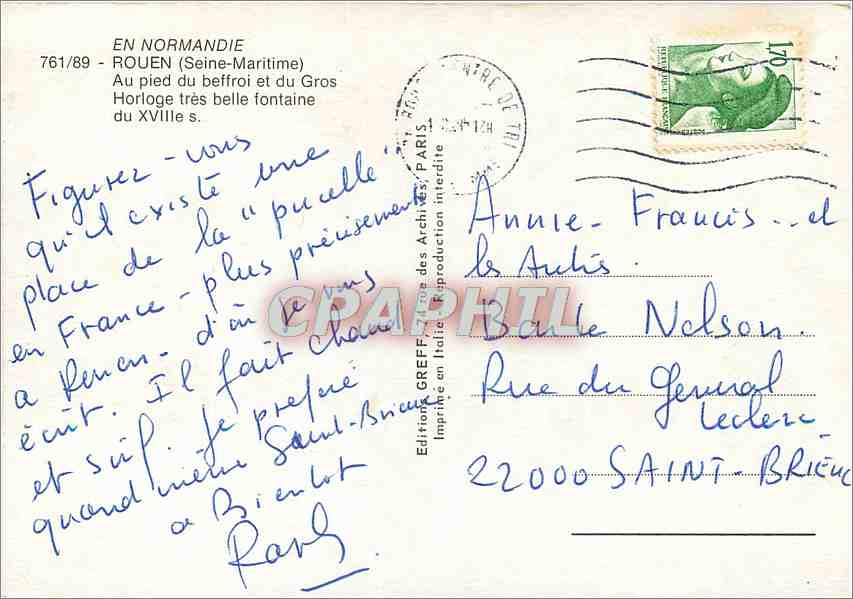 EN NORMANDIE
761/89 - ROUEN (Seine-Maritime)
Au pied du beffroi et du Gros
Horloge très belle fontaine
du XVIIIe s.
Figurez-vous
qu'il existe une
place de la "pucelle"
en France - plus précisement
a Rouen - d'où je vous
écrit. Il fait chaud
et soif. Je prefere
quand même Saint-Brieuc.
a Bientot
Editions GREFF, 74 rue des Archives, PARIS
Imprimé en Italie - Reproduction interdite
CENTRE DE TRI
1,70
REPUBLIQUE FRANÇAISE
POSTES
Annie - Francis .. et
les Autres.
Nelson.
Rue du General
Leclerc
22000 SAINT-BRIEUC
CPAPHIL